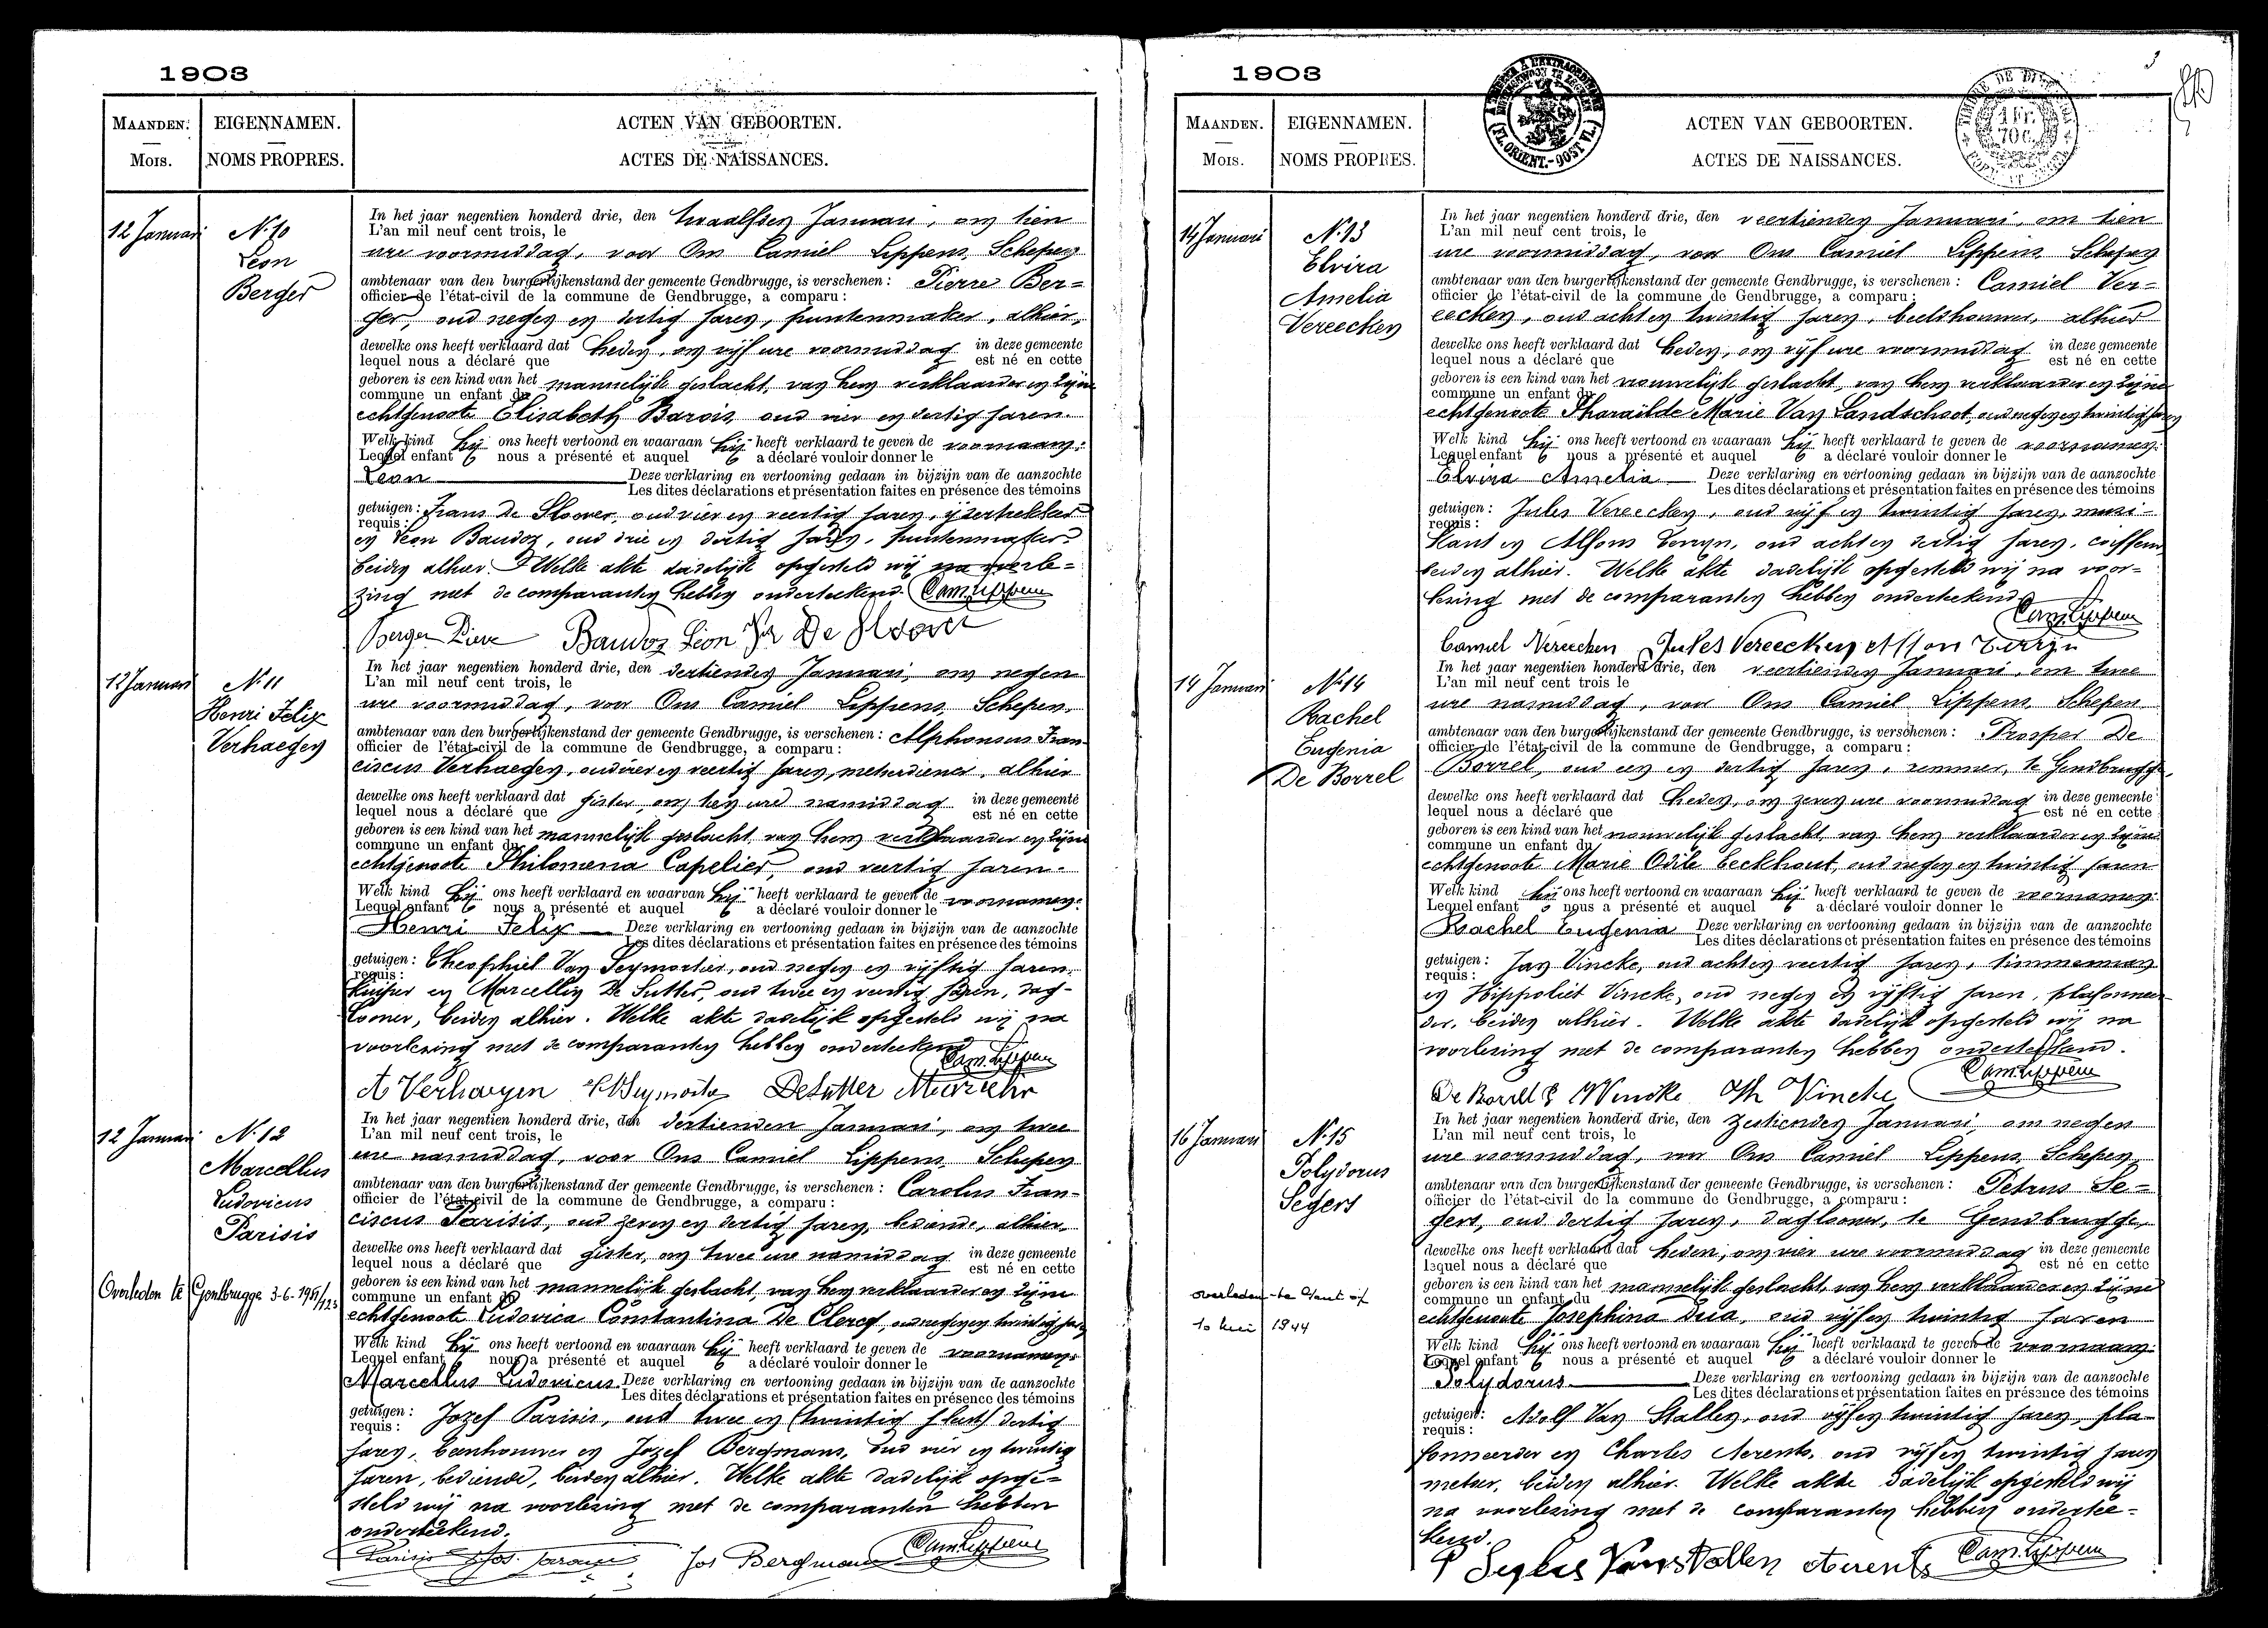 1903
MAANDEN. EIGENNAMEN. ACTEN VAN GEBOORTEN.
MOIS. NOMS PROPRES. ACTES DE NAISSANCES.
12 Januari
N. 10
Leon
Berger
In het jaar negentien honderd drie, den twaalfden Januari, om tien
L'an mil neuf cent trois, le
ure voormiddag, voor Ons Camiel Lippens, Schepen
ambtenaar van den burgerlijkenstand der gemeente Gendbrugge, is verschenen: Pierre Ber=
officier de l'état-civil de la commune de Gendbrugge, a comparu:
ger, oud negen en dertig jaren, puntenmaker, alhier,
dewelke ons heeft verklaard dat heden, om vijf ure voormiddag in deze gemeente
lequel nous a déclaré que est né en cette
geboren is een kind van het mannelijk geslacht, van hem verklaarder en zijne
commune un enfant du
echtgenoote Elisabeth Barois, oud vier en dertig jaren.
Welk kind hij ons heeft vertoond en waaraan hij heeft verklaard te geven de voornaam:
Lequel enfant nous a présenté et auquel a déclaré vouloir donner le
Leon Deze verklaring en vertooning gedaan in bijzijn van de aanzochte
Les dites déclarations et présentation faites en présence des témoins
getuigen: Frans De Sloover, oud vier en veertig jaren, ijzertrekker
requis:
en Leon Baudoz, oud drie en dertig jaren, puntenmaker
beiden alhier. Welke akte dadelijk opgesteld wij na voorle=
zing met de comparanten hebben onderteekend. Cam. Lippens
Berger Piere Baudoz Léon Fr De Sloover
12 Januari
N. 11
Henri Felix
Verhaegen
In het jaar negentien honderd drie, den dertienden Januari, om negen
L'an mil neuf cent trois, le
ure voormiddag, voor Ons Camiel Lippens, Schepen,
ambtenaar van den burgerlijkenstand der gemeente Gendbrugge, is verschenen: Alphonsus Fran-
officier de l'état-civil de la commune de Gendbrugge, a comparu:
ciscus Verhaegen, oud vier en veertig jaren, metserdiener, alhier
dewelke ons heeft verklaard dat gister, om tien ure namiddag in deze gemeente
lequel nous a déclaré que est né en cette
geboren is een kind van het mannelijk geslacht, van hem verklaarder en zijne
commune un enfant du
echtgenoote Philomena Capelier, oud veertig jaren.
Welk kind hij ons heeft verklaard en waarvan hij heeft verklaard te geven de voornamen:
Lequel enfant nous a présenté et auquel a déclaré vouloir donner le
Henri Felix Deze verklaring en vertooning gedaan in bijzijn van de aanzochte
Les dites déclarations et présentation faites en présence des témoins
getuigen: Theophiel Van Seymortier, oud negen en vijftig jaren,
requis:
kuiper en Marcellin De Sutter, oud twee en veertig jaren, dag-
looner, beiden alhier. Welke akte dadelijk opgesteld wij na
voorlezing met de comparanten hebben onderteekend Cam. Lippens
A Verhaegen DeSutter
12 Januari
N. 12
Marcellus
Ludovicus
Parisis
Overleden te Gentbrugge 3-6-1951/123
In het jaar negentien honderd drie, den dertienden Januari, om twee
L'an mil neuf cent trois, le
ure namiddag, voor Ons Camiel Lippens, Schepen
ambtenaar van den burgerlijkenstand der gemeente Gendbrugge, is verschenen: Carolus Fran-
officier de l'état-civil de la commune de Gendbrugge, a comparu:
ciscus Parisis, oud zeven en dertig jaren, bediende, alhier
dewelke ons heeft verklaard dat gister, om twee ure namiddag in deze gemeente
lequel nous a déclaré que est né en cette
geboren is een kind van het mannelijk geslacht, van hem verklaarder en zijne
commune un enfant du
echtgenoote Ludovica Constantina De Clercq, oud negen en twintig jaren
Welk kind hij ons heeft vertoond en waaraan hij heeft verklaard te geven de voornamen:
Lequel enfant nous a présenté et auquel a déclaré vouloir donner le
Marcellus Ludovicus Deze verklaring en vertooning gedaan in bijzijn van de aanzochte
Les dites déclarations et présentation faites en présence des témoins
getuigen: Jozef Parisis, oud twee en (twintig slecht) dertig
requis:
jaren, beenhouwer en Jozef Bergmans, oud vier en twintig
jaren, bediende, beiden alhier. Welke akte dadelijk opge=
steld wij na voorlezing met de comparanten hebben
onderteekend.
Parisis Jos. Parisis Jos Bergmans Cam. Lippens
1903
3
TIMBRE DE DIMENSION
1 Fr.
70 c.
(FL. ORIENT.-OOST VL.)
MAANDEN. EIGENNAMEN. ACTEN VAN GEBOORTEN.
MOIS. NOMS PROPRES. ACTES DE NAISSANCES.
14 Januari
N. 13
Elvira
Amelia
Vereecken
In het jaar negentien honderd drie, den veertienden Januari, om tien
L'an mil neuf cent trois, le
ure voormiddag, voor Ons Camiel Lippens, Schepen
ambtenaar van den burgerlijkenstand der gemeente Gendbrugge, is verschenen: Camiel Ver=
officier de l'état-civil de la commune de Gendbrugge, a comparu:
eecken, oud acht en twintig jaren, beeldhouwer, alhier
dewelke ons heeft verklaard dat heden, om vijf ure voormiddag in deze gemeente
lequel nous a déclaré que est né en cette
geboren is een kind van het vrouwelijk geslacht, van hem verklaarder en zijne
commune un enfant du
echtgenoote Pharaïlde Marie Van Landschoot, oud negen en twintig jaren
Welk kind hij ons heeft vertoond en waaraan hij heeft verklaard te geven de voornamen:
Lequel enfant nous a présenté et auquel a déclaré vouloir donner le
Elvira Amelia Deze verklaring en vertooning gedaan in bijzijn van de aanzochte
Les dites déclarations et présentation faites en présence des témoins
getuigen: Jules Vereecken, oud vijf en twintig jaren, muzi-
requis:
kant en Alfons Terryn, oud acht en dertig jaren, coiffeur
beiden alhier. Welke akte dadelijk opgesteld wij na voor=
lezing met de comparanten hebben onderteekend
Cam. Lippens
Camiel Vereecken Jules Vereecken Alfons Terryn
14 Januari
N. 14
Rachel
Eugenia
De Borrel
In het jaar negentien honderd drie, den veertienden Januari, om twee
L'an mil neuf cent trois le
ure namiddag, voor Ons Camiel Lippens, Schepen
ambtenaar van den burgerlijkenstand der gemeente Gendbrugge, is verschenen: Prosper De
officier de l'état-civil de la commune de Gendbrugge, a comparu:
Borrel, oud een en dertig jaren, remmer, te Gendbrugge,
dewelke ons heeft verklaard dat heden, om zeven ure voormiddag in deze gemeente
lequel nous a déclaré que est né en cette
geboren is een kind van het vrouwelijk geslacht, van hem verklaarder en zijne
commune un enfant du
echtgenoote Marie Odile Eeckhout, oud negen en twintig jaren
Welk kind hij ons heeft vertoond en waaraan hij heeft verklaard te geven de voornamen:
Lequel enfant nous a présenté et auquel a déclaré vouloir donner le
Rachel Eugenia Deze verklaring en vertooning gedaan in bijzijn van de aanzochte
Les dites déclarations et présentation faites en présence des témoins
getuigen: Jan Vincke, oud acht en veertig jaren, timmerman
requis:
en Hippoliet Vincke, oud negen en vijftig jaren, plafonneer-
der, beiden alhier. Welke akte dadelijk opgesteld wij na
voorlezing met de comparanten hebben onderteekend.
De Borrel P Vincke Vincke Cam. Lippens
16 Januari
N. 15
Polydorus
Segers
overleden te Gent op
10 Mei 1944
In het jaar negentien honderd drie, den zestienden Januari, om negen
L'an mil neuf cent trois, le
ure voormiddag, voor Ons Camiel Lippens, Schepen,
ambtenaar van den burgerlijkenstand der gemeente Gendbrugge, is verschenen: Petrus Se=
officier de l'état-civil de la commune de Gendbrugge, a comparu:
gers, oud dertig jaren, daglooner, te Gendbrugge,
dewelke ons heeft verklaard dat heden, om vier ure voormiddag in deze gemeente
lequel nous a déclaré que est né en cette
geboren is een kind van het mannelijk geslacht, van hem verklaarder en zijne
commune un enfant du
echtgenoote Josephina Dua, oud vijf en twintig jaren
Welk kind hij ons heeft vertoond en waaraan hij heeft verklaard te geven de voornaam:
Lequel enfant nous a présenté et auquel a déclaré vouloir donner le
Polydorus Deze verklaring en vertooning gedaan in bijzijn van de aanzochte
Les dites déclarations et présentation faites en présence des témoins
getuigen: Adolf Van Stallen, oud vijf en twintig jaren, pla-
requis:
fonneerder en Charles Aerents, oud vijf en twintig jaren
metser, beiden alhier. Welke akte dadelijk opgesteld wij
na voorlezing met de comparanten hebben ondertee=
kend.
P Seghers Van Stallen Aerents Cam. Lippens